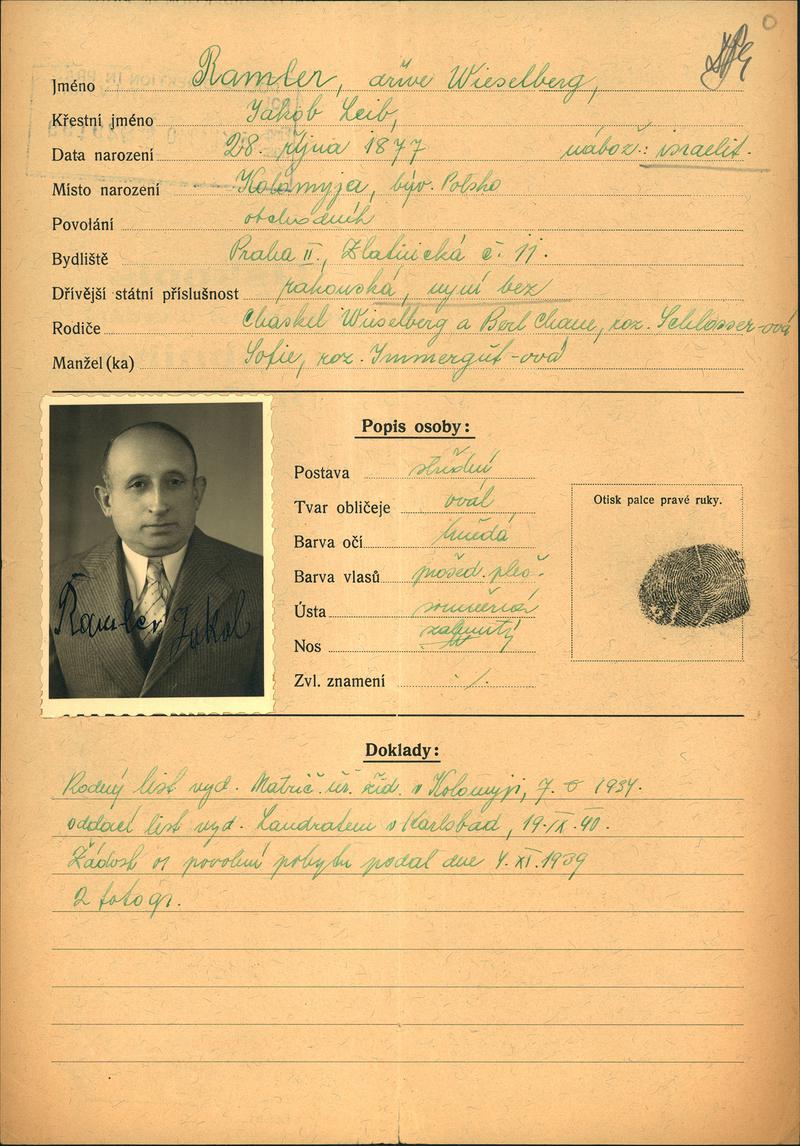 Jméno Ramler, dříve Wieselberg,
Křestní jméno Jakob Leib,
Data narození 28. října 1877 nábož.: israelit.
Místo narození Kolomyja, býv. Polsko
Povolání obchodník
Bydliště Praha II., Zlatnická č. 11.
Dřívější státní příslušnost rakouská, nyní bez
Rodiče Chaskel Wieselberg a Berl Chane, roz. Schlosser-ová
Manžel(ka) Sofie, roz. Immergut-ová
Popis osoby:
Postava střední
Tvar obličeje ovál
Barva očí hnědá
Barva vlasů prošed. pleš.
Ústa souměrná
Nos zahnutý
Zvl. znamení ./.
Otisk palce pravé ruky.
Ramler Jakob
Doklady:
Rodný list vyd. Matrič. úř. žid. v Kolomyji, 7. 1934.
oddací list vyd. Landratem v Karlsbad, 19.IX.40.
Žádost o povolení pobytu podal dne 4.XI.1939
2 fotogr.